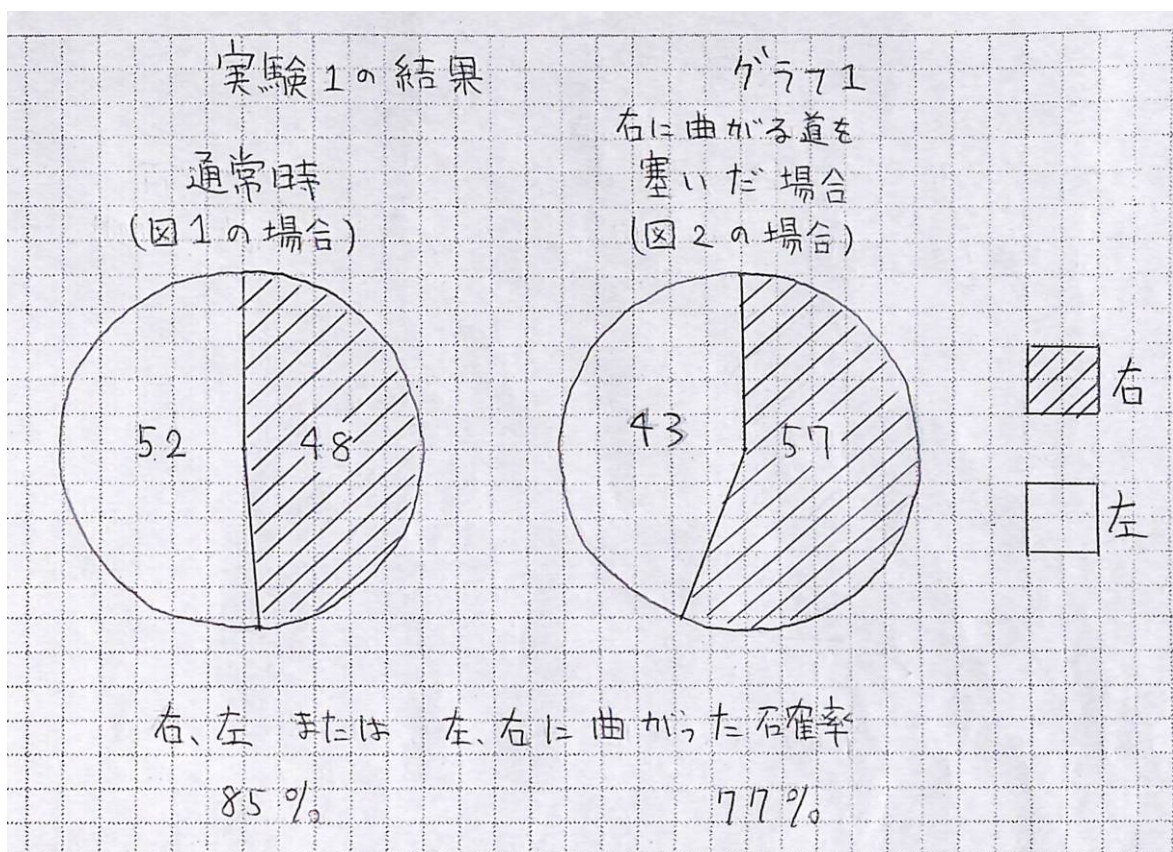 実験1の結果
グラフ1
通常時
(図1の場合)
右に曲がる道を
塞いだ場合
(図2の場合)
52
48
43
57
右
左
右、左 または 左、右に曲がった確率
85%
77%